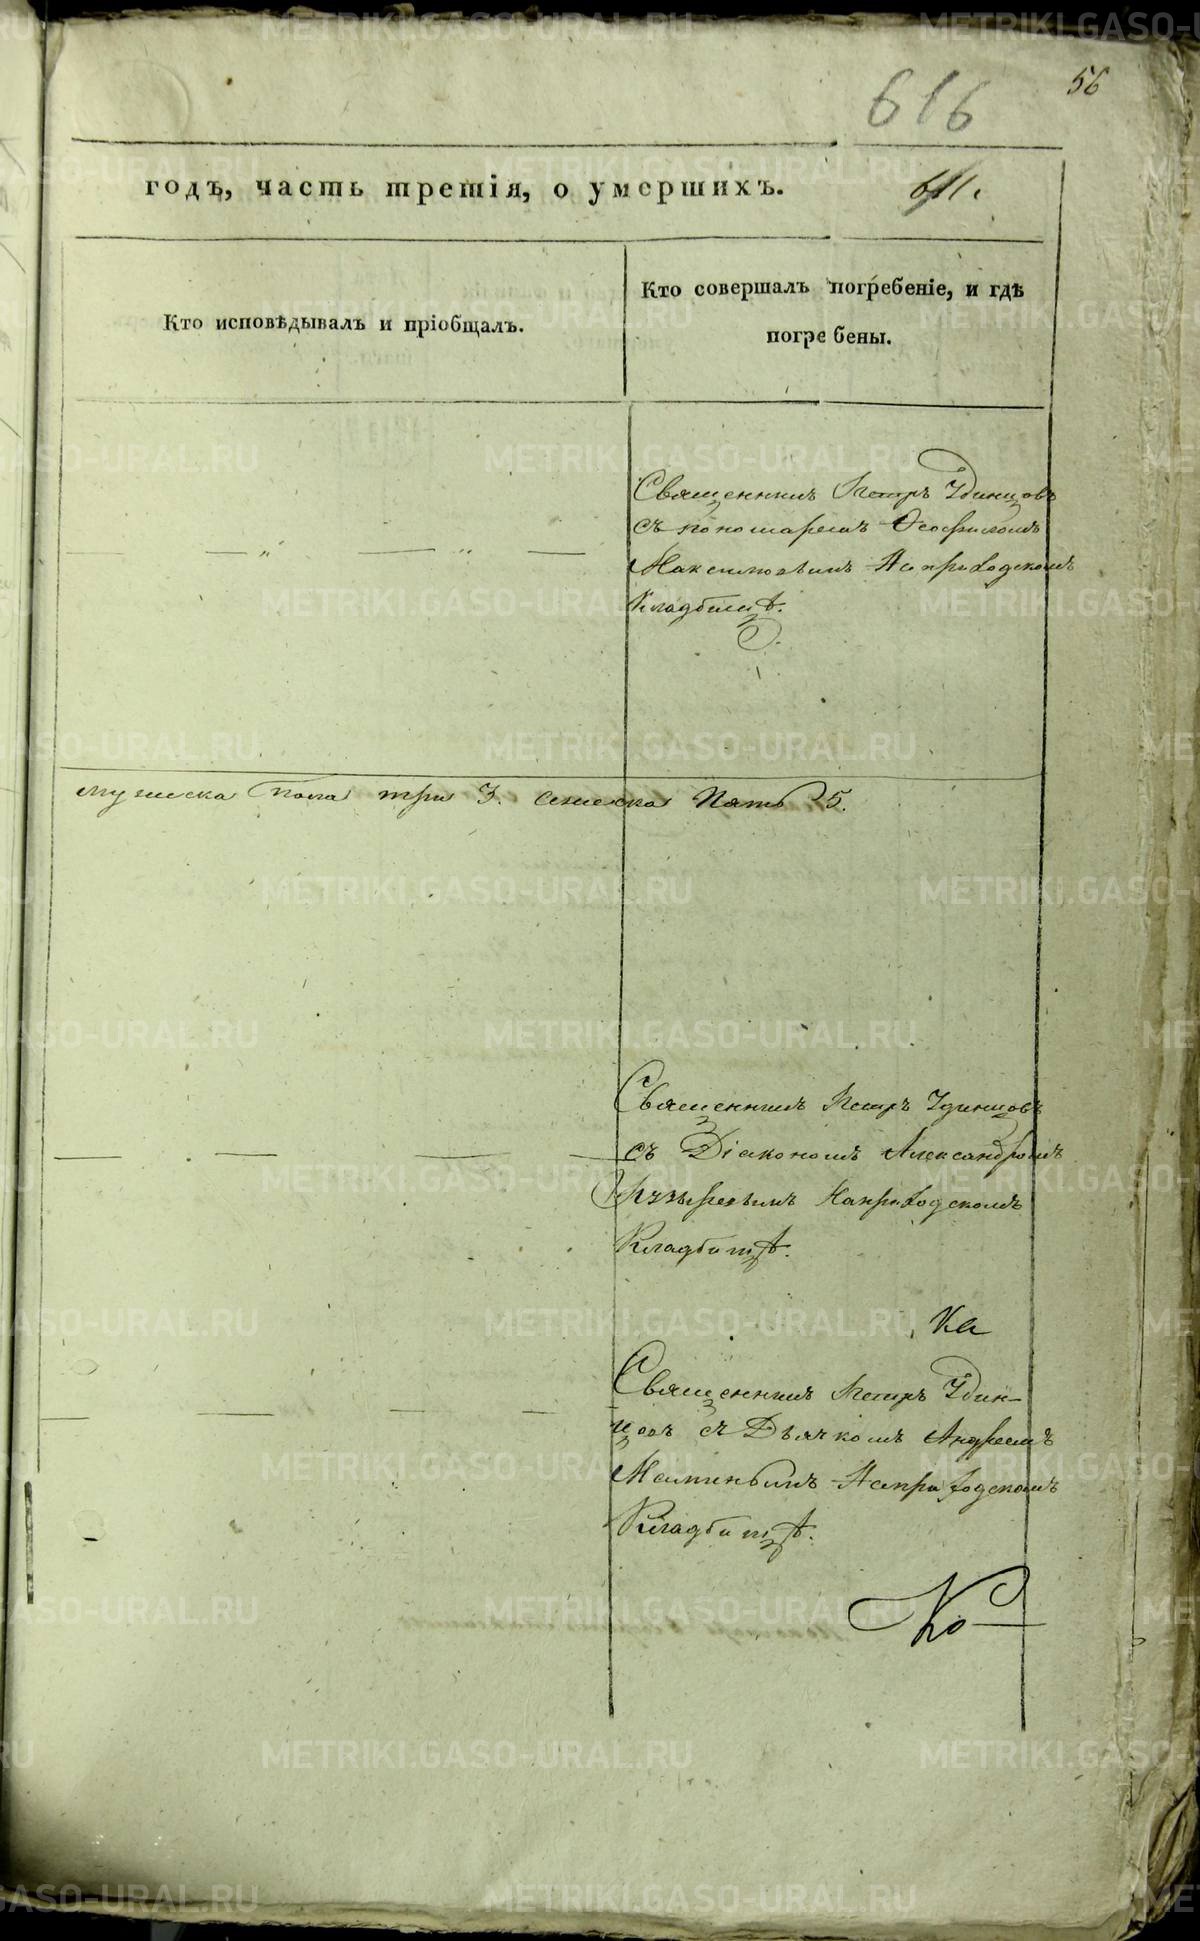 56
616
годъ, часть третія, о умершихъ.
611.
Кто исповѣдывалъ и пріобщалъ.
Кто совершалъ погребеніе, и гдѣ
погребены.
Священникъ Петръ Удинцовъ
съ пономаремъ Ѳеофиломъ
Максимовымъ На приходскомъ
Кладбищѣ.
мужеска пола три 3. женска Пять 5.
Священникъ Петръ Удинцовъ
съ Діакономъ Александромъ
Пузыревымъ На приходскомъ
Кладбищѣ.
Ка
Священникъ Петръ Удин-
цовъ съ Дьячкомъ Андреемъ
Маминымъ На приходскомъ
Кладбищѣ.
Ко
METRIKI.GASO-URAL.RU